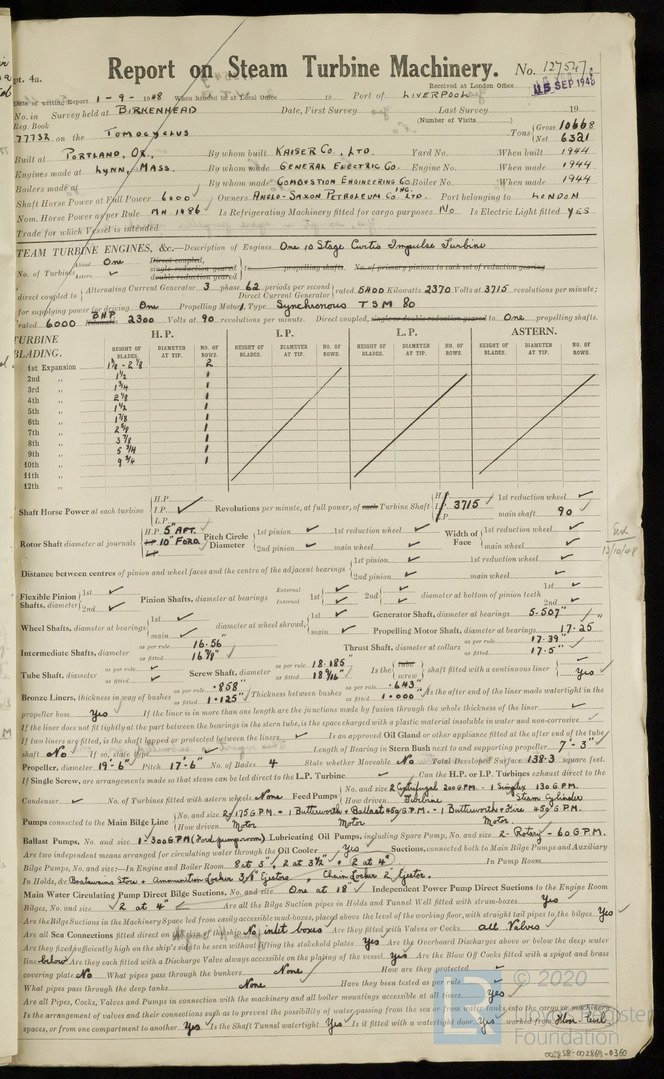 pt. 4a.
Report on Steam Turbine Machinery. No. 127547
Received at London Office 15 SEP 1948
Date of writing Report 1-9-1948 When handed in at Local Office 19 Port of LIVERPOOL
No. in Survey held at BIRKENHEAD Date, First Survey Last Survey 19
Reg. Book (Number of Visits )
77732 on the TOMOCYCLUS Tons Gross 10668 Net 6321
Built at PORTLAND, OR., By whom built KAISER CO., LTD. Yard No. When built 1944
Engines made at LYNN, MASS. By whom made GENERAL ELECTRIC CO. Engine No. When made 1944
Boilers made at By whom made COMBUSTION ENGINEERING CO INC. Boiler No. When made 1944
Shaft Horse Power at Full Power 6000 Owners ANGLO-SAXON PETROLEUM CO. LTD. Port belonging to LONDON
Nom. Horse Power as per Rule MN 1986 Is Refrigerating Machinery fitted for cargo purposes No Is Electric Light fitted YES
Trade for which Vessel is intended
STEAM TURBINE ENGINES, &c.—Description of Engines One 10 Stage Curtis Impulse Turbine
No. of Turbines Ahead One Astern Direct coupled, single reduction geared double reduction geared to propelling shafts. No. of primary pinions to each set of reduction gearing
direct coupled to Alternating Current Generator 3 phase 62 periods per second Direct Current Generator rated 5400 Kilowatts 2370 Volts at 3715 revolutions per minute;
for supplying power for driving One Propelling Motor, Type Synchronous TSM 80
rated 6000 BHP Kilowatts 2300 Volts at 90 revolutions per minute. Direct coupled, single or double reduction geared to One propelling shafts.
TURBINE BLADING. H.P. I.P. L.P. ASTERN.
HEIGHT OF BLADES. DIAMETER AT TIP. NO. OF ROWS. HEIGHT OF BLADES. DIAMETER AT TIP. NO. OF ROWS. HEIGHT OF BLADES. DIAMETER AT TIP. NO. OF ROWS. HEIGHT OF BLADES. DIAMETER AT TIP. NO. OF ROWS.
1st Expansion 2
2nd " 1½ 1
3rd " 1¾ 1
4th " 2⅛ 1
5th " 1½ 1
6th " 1⅞ 1
7th " 2⅝ 1
8th " 3⅞ 1
9th " 5¾ 1
10th " 9¾ 1
11th "
12th "
Shaft Horse Power at each turbine H.P. I.P. L.P. Revolutions per minute, at full power, of each Turbine Shaft H.P. I.P. 3715 L.P. 1st reduction wheel main shaft 90
Rotor Shaft diameter at journals H.P. 5" AFT. I.P. 10" FORD L.P. Pitch Circle Diameter 1st pinion 2nd pinion 1st reduction wheel main wheel Width of Face 1st reduction wheel main wheel
Distance between centres of pinion and wheel faces and the centre of the adjacent bearings 1st pinion 2nd pinion 1st reduction wheel main wheel
13/10/48
Flexible Pinion Shafts, diameter 1st 2nd Pinion Shafts, diameter at bearings External Internal 1st 2nd diameter at bottom of pinion teeth 1st 2nd
Wheel Shafts, diameter at bearings 1st main diameter at wheel shroud, 1st main Generator Shaft, diameter at bearings 5.507" Propelling Motor Shaft, diameter at bearings 17.25
Intermediate Shafts, diameter as per rule 16.56" as fitted 16⅝" Thrust Shaft, diameter at collars as per rule 17.39" as fitted 17.5"
Tube Shaft, diameter as per rule as fitted Screw Shaft, diameter as per rule 18.185 as fitted Is the tube screw shaft fitted with a continuous liner Yes
Bronze Liners, thickness in way of bushes as per rule .858" as fitted 1.125" Thickness between bushes as per rule .643" as fitted 1.000" Is the after end of the liner made watertight in the
propeller boss Yes If the liner is in more than one length are the junctions made by fusion through the whole thickness of the liner
If the liner does not fit tightly at the part between the bearings in the stern tube, is the space charged with a plastic material insoluble in water and non-corrosive
If two liners are fitted, is the shaft lapped or protected between the liners Is an approved Oil Gland or other appliance fitted at the after end of the tube
shaft No If so, state type Length of Bearing in Stern Bush next to and supporting propeller 7'-3"
Propeller, diameter 19'-6" Pitch 17'-6" No. of Blades 4 State whether Moveable No Total Developed Surface 138.3 square feet.
If Single Screw, are arrangements made so that steam can be led direct to the L.P. Turbine Can the H.P. or I.P. Turbines exhaust direct to the
Condenser No. of Turbines fitted with astern wheels None Feed Pumps No. and size 2 Centrifugal 200 GPM. - 1 Simplex 130 GPM. How driven Turbine Steam Cylinder
Pumps connected to the Main Bilge Line No. and size 2/175 GPM. - 1 Butterworth & Ballast 450 GPM. - 1 Butterworth & Fire 450 GPM. How driven Motor Motor Motor
Ballast Pumps, No. and size 1-300 GPM (Ford pump room) Lubricating Oil Pumps, including Spare Pump, No. and size 2 - Rotary - 60 G.P.M.
Are two independent means arranged for circulating water through the Oil Cooler Yes Suctions, connected to both Main Bilge Pumps and Auxiliary
Bilge Pumps, No. and size:—In Engine and Boiler Room 8 at 3", 2 at 3½" & 2 at 4" In Pump Room
In Holds, &c. Boatswains Store & Ammunition Locker 3/8" Ejectors, Chain Locker 2" Ejector.
Main Water Circulating Pump Direct Bilge Suctions, No. and size One at 18" Independent Power Pump Direct Suctions to the Engine Room
Bilges, No. and size 2 at 4" Are all the Bilge Suction pipes in Holds and Tunnel Well fitted with strum-boxes Yes
Are the Bilge Suctions in the Machinery Space led from easily accessible mud-boxes, placed above the level of the working floor, with straight tail pipes to the bilges Yes
Are all Sea Connections fitted direct on the skin of the ship No, inlet boxes Are they fitted with Valves or Cocks all Valves
Are they fixed sufficiently high on the ship's side to be seen without lifting the stokehold plates Yes Are the Overboard Discharges above or below the deep water
line below Are they each fitted with a Discharge Valve always accessible on the plating of the vessel yes Are the Blow Off Cocks fitted with a spigot and brass
covering plate No What pipes pass through the bunkers None How are they protected
What pipes pass through the deep tanks None Have they been tested as per rule
Are all Pipes, Cocks, Valves and Pumps in connection with the machinery and all boiler mountings accessible at all times yes
Is the arrangement of valves and their connections such as to prevent the possibility of water passing from the sea or from water tanks into the cargo or machinery
spaces, or from one compartment to another Yes Is the Shaft Tunnel watertight Yes Is it fitted with a watertight door Yes worked from Floor level
© 2020
Lloyd's Register
Foundation
002858-002869-0360